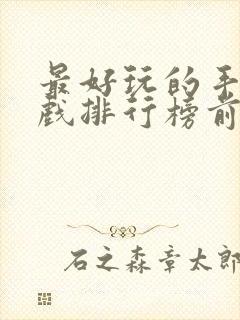 最好玩的手
戏排行榜前
石之森章太郎